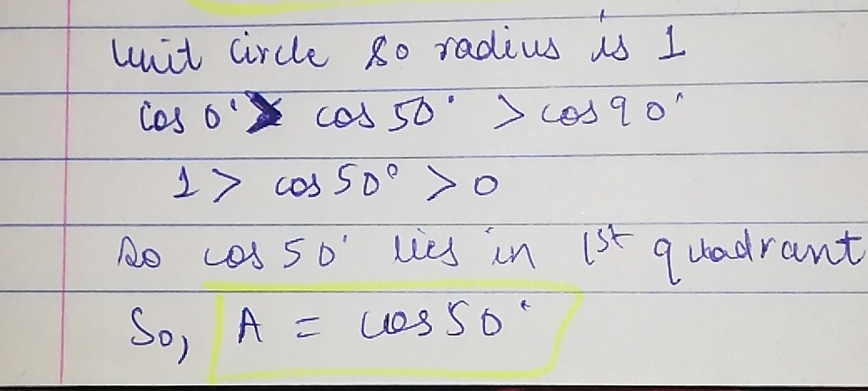 Unit Circle so radius is 1
cos 0° > cos 50° > cos 90°
1 > cos 50° > 0
So cos 50° lies in 1st quadrant
So, A = cos 50°